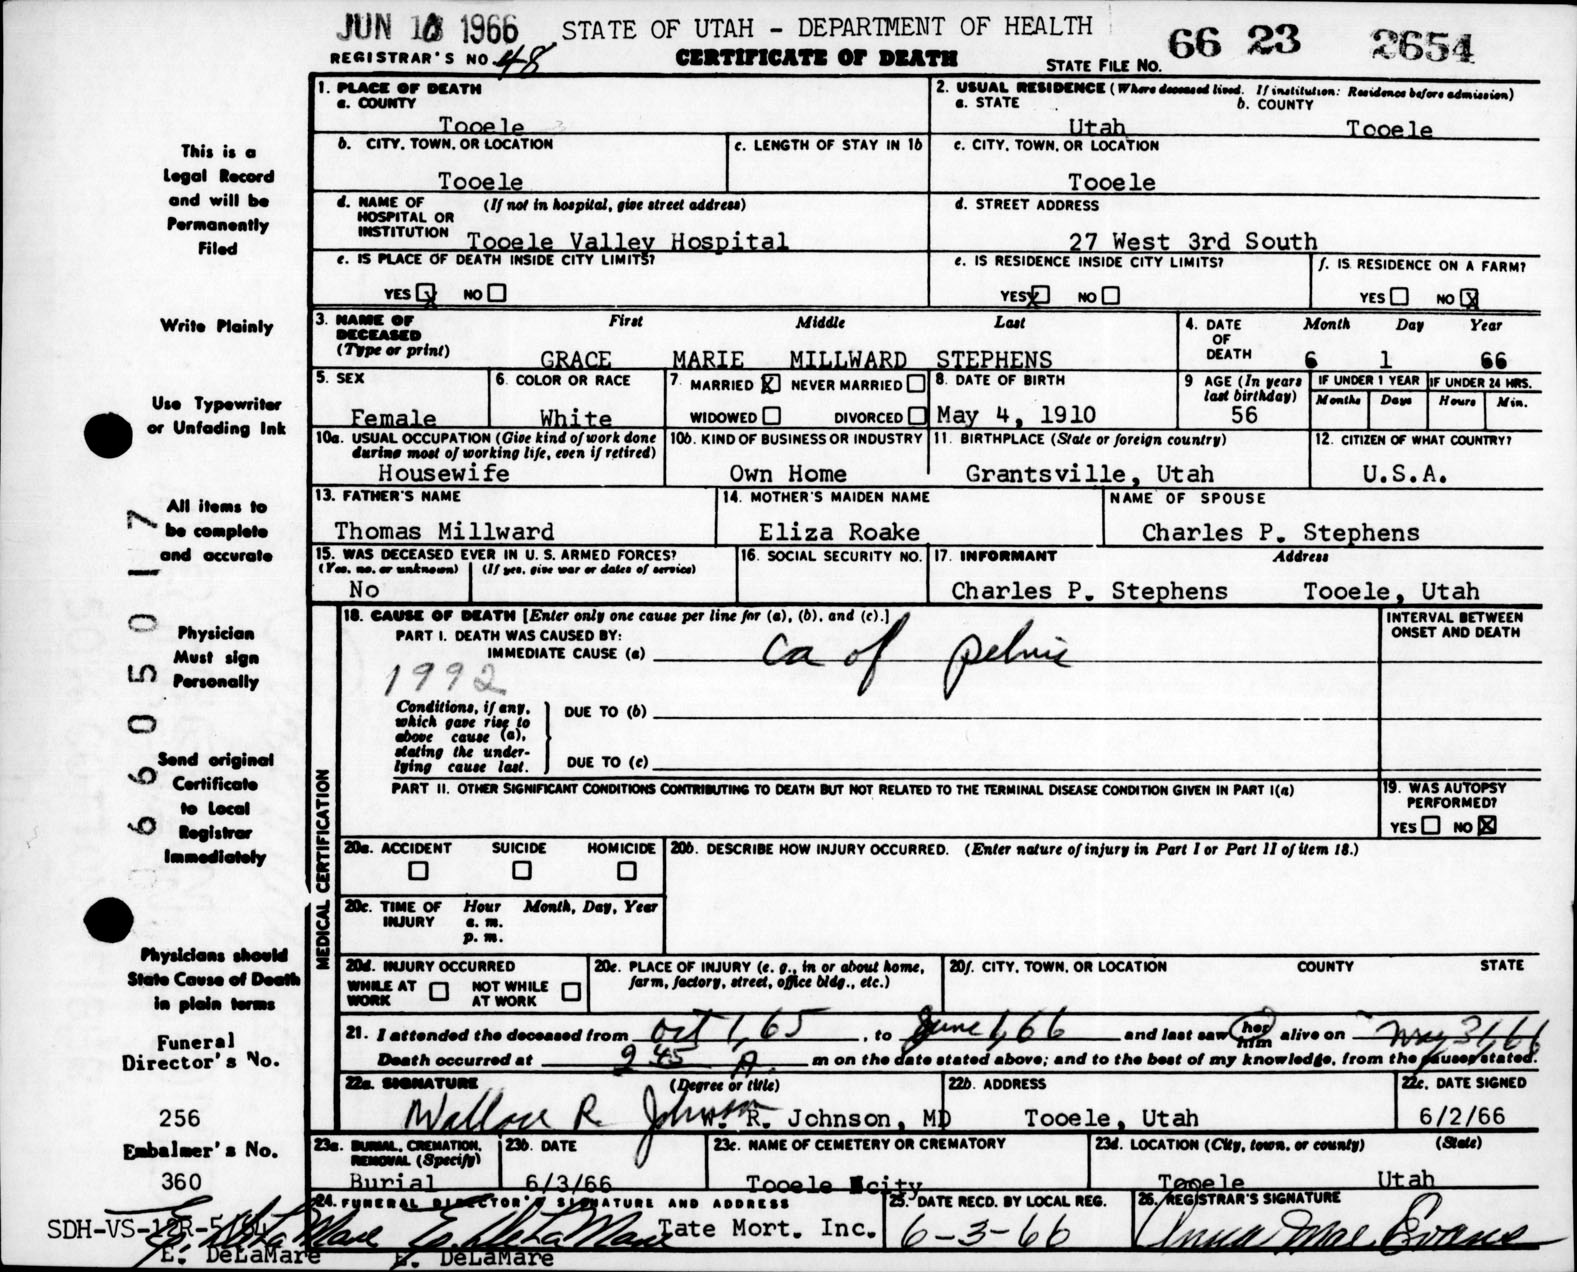 JUN 1 1966 STATE OF UTAH - DEPARTMENT OF HEALTH 66 23 2654
REGISTRAR'S NO. 48 CERTIFICATE OF DEATH STATE FILE NO.
1. PLACE OF DEATH
a. COUNTY
Tooele
2. USUAL RESIDENCE (Where deceased lived. If institution: Residence before admission)
a. STATE b. COUNTY
Utah Tooele
b. CITY, TOWN, OR LOCATION
Tooele
c. LENGTH OF STAY IN 1b
c. CITY, TOWN, OR LOCATION
Tooele
d. NAME OF (If not in hospital, give street address)
HOSPITAL OR
INSTITUTION Tooele Valley Hospital
d. STREET ADDRESS
27 West 3rd South
e. IS PLACE OF DEATH INSIDE CITY LIMITS?
YES X NO
e. IS RESIDENCE INSIDE CITY LIMITS?
YES X NO
f. IS RESIDENCE ON A FARM?
YES NO X
3. NAME OF First Middle Last
DECEASED
(Type or print) GRACE MARIE MILLWARD STEPHENS
4. DATE Month Day Year
OF
DEATH 6 1 66
5. SEX
Female
6. COLOR OR RACE
White
7. MARRIED X NEVER MARRIED
WIDOWED DIVORCED
8. DATE OF BIRTH
May 4, 1910
9 AGE (In years
last birthday)
56
IF UNDER 1 YEAR IF UNDER 24 HRS.
Months Days Hours Min.
10a. USUAL OCCUPATION (Give kind of work done
during most of working life, even if retired)
Housewife
10b. KIND OF BUSINESS OR INDUSTRY
Own Home
11. BIRTHPLACE (State or foreign country)
Grantsville, Utah
12. CITIZEN OF WHAT COUNTRY?
U.S.A.
13. FATHER'S NAME
Thomas Millward
14. MOTHER'S MAIDEN NAME
Eliza Roake
NAME OF SPOUSE
Charles P. Stephens
15. WAS DECEASED EVER IN U. S. ARMED FORCES?
(Yes, no, or unknown) (If yes, give war or dates of service)
No
16. SOCIAL SECURITY NO.
17. INFORMANT Address
Charles P. Stephens Tooele, Utah
MEDICAL CERTIFICATION
18. CAUSE OF DEATH [Enter only one cause per line for (a), (b), and (c).]
PART I. DEATH WAS CAUSED BY:
IMMEDIATE CAUSE (a) Ca of pelvic
1992
Conditions, if any,
which gave rise to
above cause (a),
stating the under-
lying cause last.
DUE TO (b)
DUE TO (c)
INTERVAL BETWEEN
ONSET AND DEATH
PART II. OTHER SIGNIFICANT CONDITIONS CONTRIBUTING TO DEATH BUT NOT RELATED TO THE TERMINAL DISEASE CONDITION GIVEN IN PART I(a)
19. WAS AUTOPSY
PERFORMED?
YES NO X
20a. ACCIDENT SUICIDE HOMICIDE
20b. DESCRIBE HOW INJURY OCCURRED. (Enter nature of injury in Part I or Part II of item 18.)
20c. TIME OF Hour Month, Day, Year
INJURY a. m.
p. m.
20d. INJURY OCCURRED
WHILE AT NOT WHILE
WORK AT WORK
20e. PLACE OF INJURY (e. g., in or about home,
farm, factory, street, office bldg., etc.)
20f. CITY, TOWN, OR LOCATION COUNTY STATE
21. I attended the deceased from Oct 1, 65, to June 1, 66 and last saw her him alive on May 31, 66
Death occurred at 9 45 A. m on the date stated above; and to the best of my knowledge, from the causes stated.
22a. SIGNATURE (Degree or title)
Wallace R. Johnson W. R. Johnson, MD
22b. ADDRESS
Tooele, Utah
22c. DATE SIGNED
6/2/66
23a. BURIAL, CREMATION,
REMOVAL (Specify)
Burial
23b. DATE
6/3/66
23c. NAME OF CEMETERY OR CREMATORY
Tooele city
23d. LOCATION (City, town, or county) (State)
Tooele Utah
24. FUNERAL DIRECTOR'S SIGNATURE AND ADDRESS
E. DeLaMare E. DeLaMare Tate Mort. Inc.
E. DeLaMare E. DeLaMare
25. DATE RECD. BY LOCAL REG.
6-3-66
26. REGISTRAR'S SIGNATURE
Anna Mae Evans
This is a
Legal Record
and will be
Permanently
Filed
Write Plainly
Use Typewriter
or Unfading Ink
All items to
be complete
and accurate
Physician
Must sign
Personally
Send original
Certificate
to Local
Registrar
Immediately
Physicians should
State Cause of Death
in plain terms
Funeral
Director's No.
256
Embalmer's No.
360
SDH-VS-12R-5
0 6 6 0 5 0 1 7